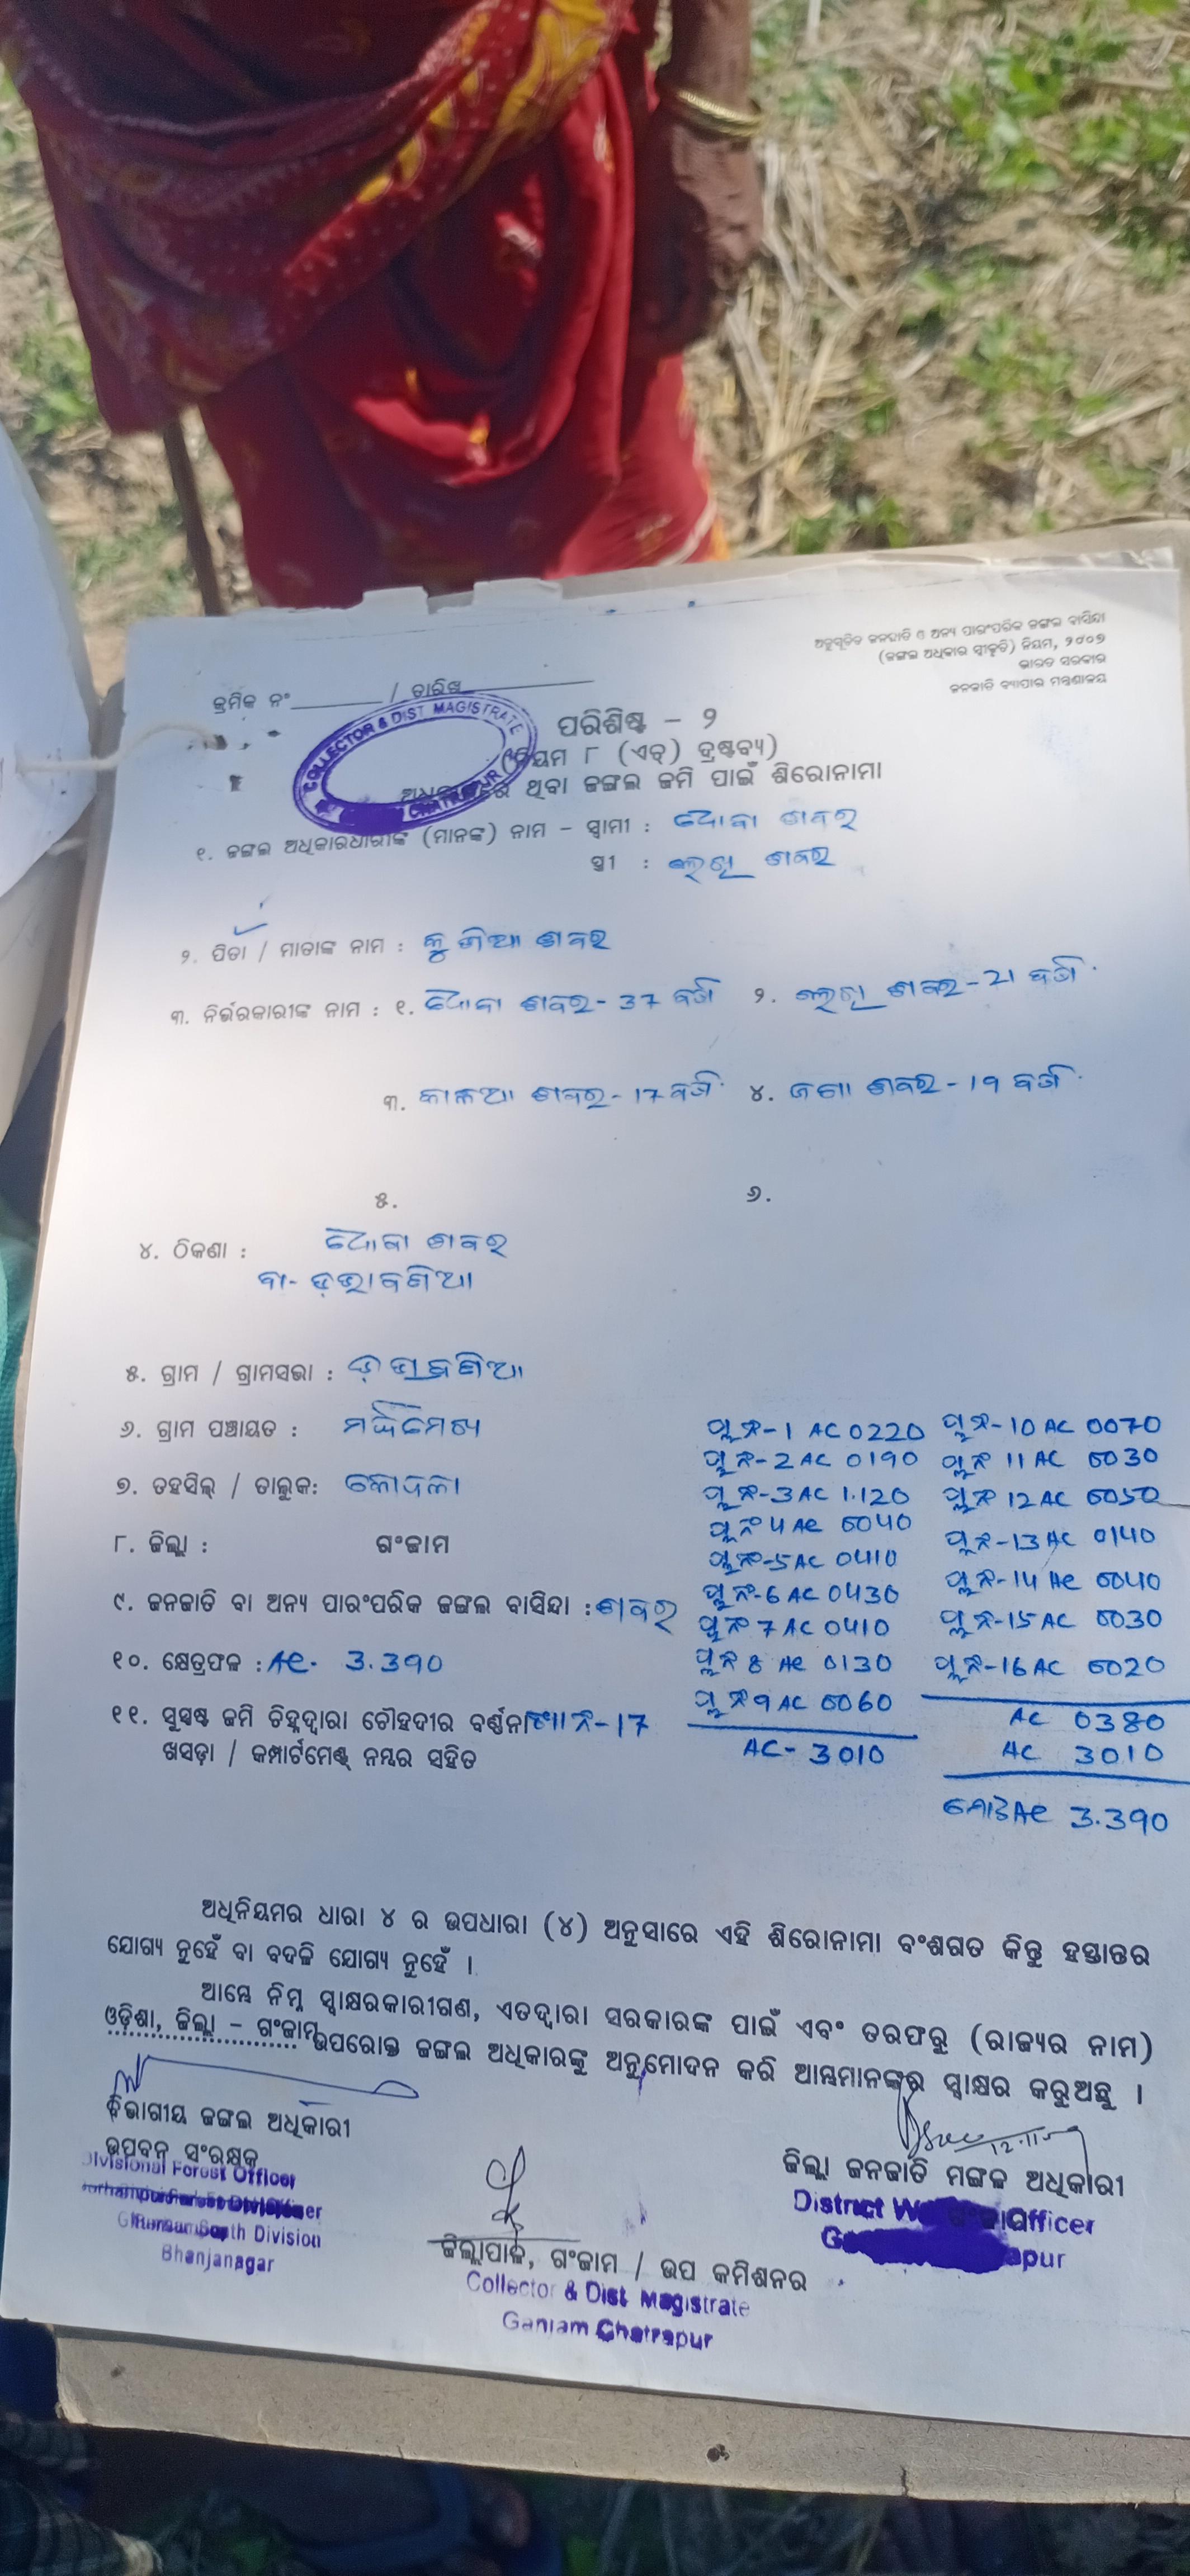 ଅନୁସୂଚିତ ଜନଜାତି ଓ ଅନ୍ୟ ପାରଂପରିକ ଜଙ୍ଗଲ ବାସିନ୍ଦା
(ଜଙ୍ଗଲ ଅଧିକାର ସ୍ୱୀକୃତି) ନିୟମ, ୨୦୦୭
ଭାରତ ସରକାର
ଜନଜାତି ବ୍ୟାପାର ମନ୍ତ୍ରଣାଳୟ
କ୍ରମିକ ନଂ______ / ତାରିଖ________
COLLECTOR & DIST MAGISTRATE
ପରିଶିଷ୍ଟ – ୨
(ନିୟମ ୮ (ଏଚ୍) ଦ୍ରଷ୍ଟବ୍ୟ)
ଥିବା ଜଙ୍ଗଲ ଜମି ପାଇଁ ଶିରୋନାମା
୧. ଜଙ୍ଗଲ ଅଧିକାରଧାରୀଙ୍କ (ମାନଙ୍କ) ନାମ – ସ୍ୱାମୀ : ଶବର
ସ୍ତ୍ରୀ : ଶବର
୨. ପିତା / ମାତାଙ୍କ ନାମ : ଶବର
୩. ନିର୍ଭରକାରୀଙ୍କ ନାମ : ୧. ଶବର - 37 ବର୍ଷ ୨. ଶବର - 21 ବର୍ଷ
୩. ଶବର - 17 ବର୍ଷ ୪. ଶବର - 19 ବର୍ଷ
୫. ୬.
୪. ଠିକଣା : ଶବର
୫. ଗ୍ରାମ / ଗ୍ରାମସଭା :
୬. ଗ୍ରାମ ପଞ୍ଚାୟତ :
୭. ତହସିଲ୍ / ତାଲୁକ: କୋଦଳା
୮. ଜିଲ୍ଲା : ଗଂଜାମ
୯. ଜନଜାତି ବା ଅନ୍ୟ ପାରଂପରିକ ଜଙ୍ଗଲ ବାସିନ୍ଦା : ଶବର
୧୦. କ୍ଷେତ୍ରଫଳ : Ac. 3.390
୧୧. ସୁସ୍ପଷ୍ଟ ଜମି ଚିହ୍ନଦ୍ୱାରା ଚୌହଦୀର ବର୍ଣ୍ଣନା -17
ଖସଡ଼ା / କମ୍ପାର୍ଟମେଣ୍ଟ୍ ନମ୍ବର ସହିତ
ପ୍ଲ ନଂ-1 AC 0220
ପ୍ଲ ନଂ-2 AC 0190
ପ୍ଲ ନଂ-3 AC 1.120
ପ୍ଲ ନଂ 4 Ac 0040
ପ୍ଲ ନଂ-5 AC 0410
ପ୍ଲ ନଂ-6 AC 0430
ପ୍ଲ ନଂ 7 AC 0410
ପ୍ଲ ନଂ 8 Ac 0130
ପ୍ଲ ନଂ 9 AC 0060
AC- 3010
ପ୍ଲ ନଂ-10 AC 0070
ପ୍ଲ ନଂ 11 AC 0030
ପ୍ଲ ନଂ 12 AC 0050
ପ୍ଲ ନଂ-13 AC 0140
ପ୍ଲ ନଂ-14 Ac 0040
ପ୍ଲ ନଂ-15 AC 0030
ପ୍ଲ ନଂ-16 AC 0020
AC 0380
AC 3010
ମୋଟ Ac 3.390
ଅଧିନିୟମର ଧାରା ୪ ର ଉପଧାରା (୪) ଅନୁସାରେ ଏହି ଶିରୋନାମା ବଂଶଗତ କିନ୍ତୁ ହସ୍ତାନ୍ତର
ଯୋଗ୍ୟ ନୁହେଁ ବା ବଦଳି ଯୋଗ୍ୟ ନୁହେଁ ।
ଆମ୍ଭେ ନିମ୍ନ ସ୍ୱାକ୍ଷରକାରୀଗଣ, ଏତଦ୍ୱାରା ସରକାରଙ୍କ ପାଇଁ ଏବଂ ତରଫରୁ (ରାଜ୍ୟର ନାମ)
ଓଡ଼ିଶା, ଜିଲ୍ଲା – ଗଂଜାମ ଉପରୋକ୍ତ ଜଙ୍ଗଲ ଅଧିକାରଙ୍କୁ ଅନୁମୋଦନ କରି ଆମ୍ଭମାନଙ୍କର ସ୍ୱାକ୍ଷର କରୁଅଛୁ ।
ବିଭାଗୀୟ ଜଙ୍ଗଲ ଅଧିକାରୀ
ଉପବନ ସଂରକ୍ଷକ
Divisional Forest Officer
Ghumsur South Division
Bhanjanagar
ଜିଲ୍ଲାପାଳ, ଗଂଜାମ / ଉପ କମିଶନର
Collector & Dist. Magistrate
Ganjam Chatrapur
ଜିଲ୍ଲା ଜନଜାତି ମଙ୍ଗଳ ଅଧିକାରୀ
District Officer